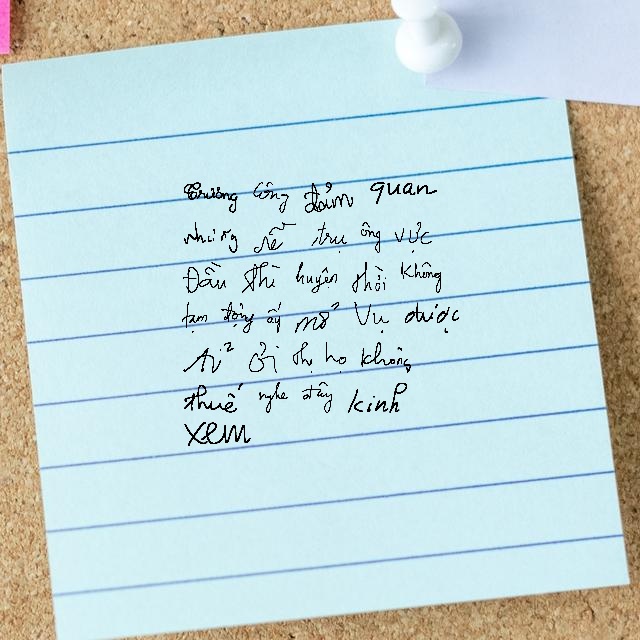 Trường Công đảm quan
những rễ trụ ông vực
Đầu thì huyện thời không
tạm động ấy mở Vụ được
ơi thị họ không
thuế nghe đây kinh
xem